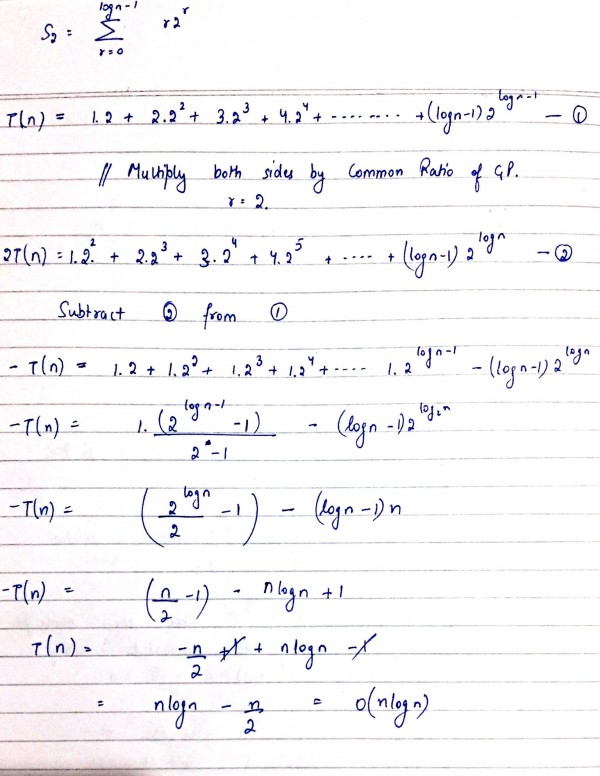 S₂ = Σ_{r=0}^{logn-1} r2^r
T(n) = 1.2 + 2.2² + 3.2³ + 4.2⁴ + -------- + (logn-1) 2^{logn-1} — ①
// Multiply both sides by Common Ratio of GP.
r = 2.
2T(n) = 1.2² + 2.2³ + 3.2⁴ + 4.2⁵ + ---- + (logn-1) 2^{logn} — ②
Subtract ② from ①
- T(n) = 1.2 + 1.2² + 1.2³ + 1.2⁴ + ---- 1.2^{logn-1} - (logn-1) 2^{logn}
-T(n) = 1.(2^{logn-1} -1)/(2-1) - (logn-1)2^{log₂n}
-T(n) = (2^{logn}/2 - 1) - (logn-1)n
-T(n) = (n/2 -1) - nlogn + 1
T(n) = -n/2 + 1 + nlogn - 1
= nlogn - n/2 = O(nlogn)